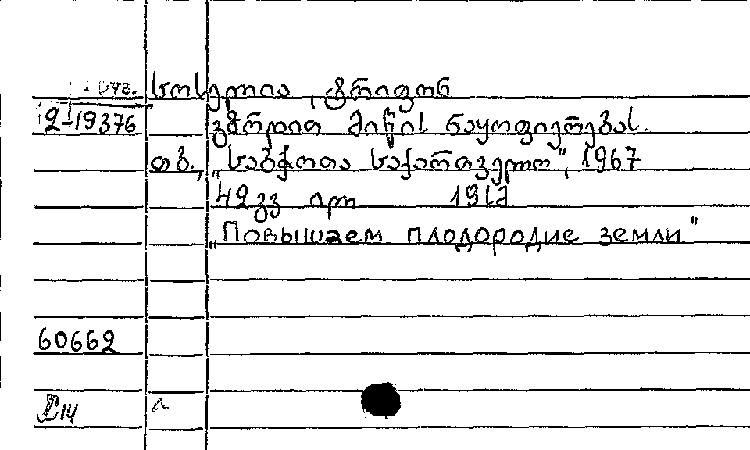 სოსელია, ტრიფონ
2-19376 ვზრდით მიწის ნაყოფიერებას.
თბ., „საბჭოთა საქართველო", 1967
42 გვ ილ
„Повышаем плодородие земли"
60662